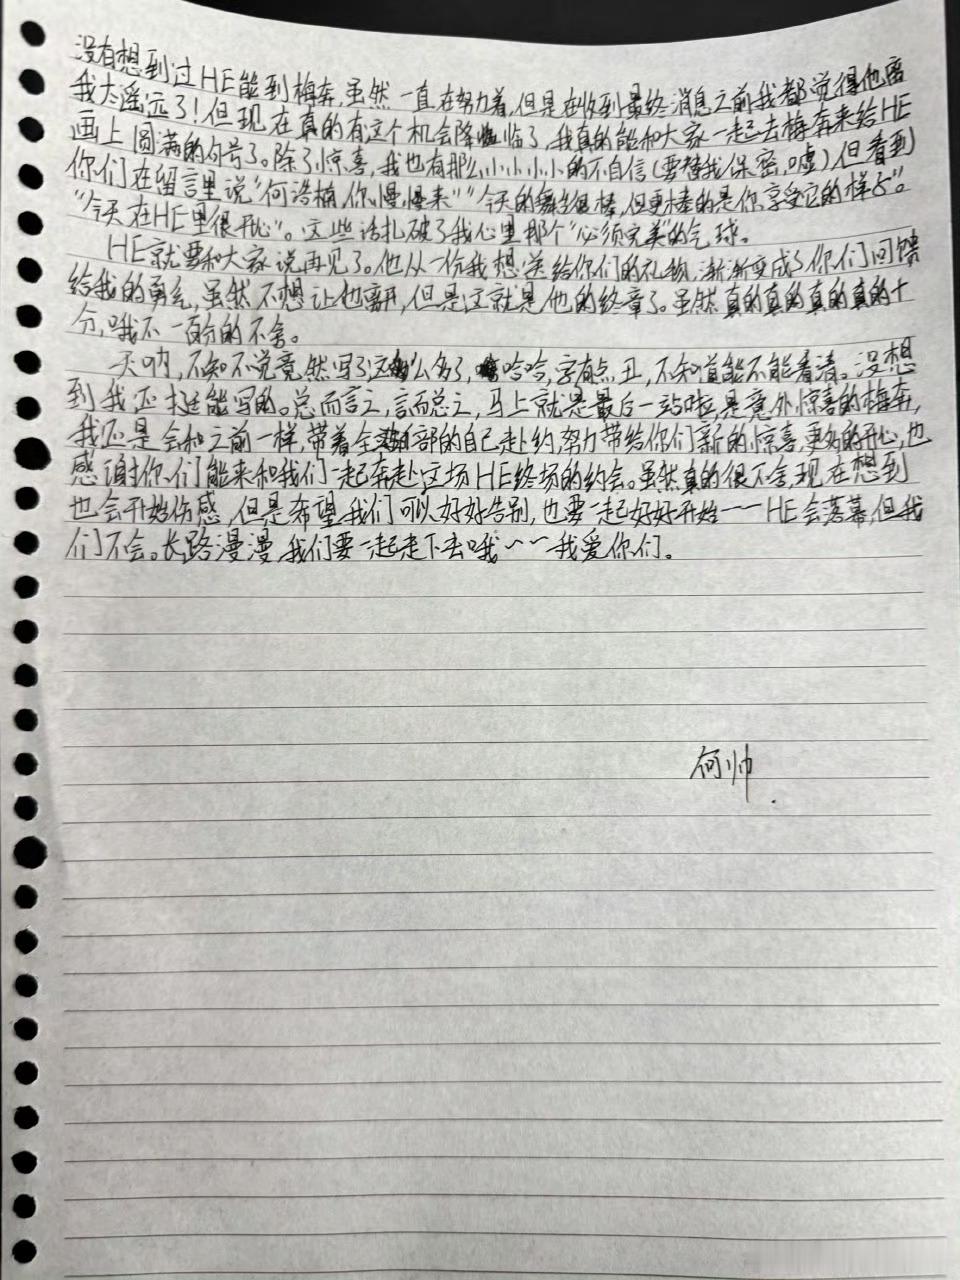 没有想到过HE能到梅奔,虽然一直在努力着,但是在收到最终消息之前我都觉得他离
我太遥远了!但现在真的有这个机会降临了,我真的能和大家一起去梅奔来给HE
画上圆满的句号了。除了惊喜,我也有那么小小小小的不自信(要替我保密,嘘)但看到
你们在留言里说“何浩楠,你慢慢来”“今天的舞台很棒,但更棒的是你享受它的样子”。
“今天在HE里很开心”。这些话扎破了我心里那个“必须完美”的气球。
HE就要和大家说再见了。他从一份我想送给你们的礼物,渐渐变成了你们回馈
给我的勇气,虽然不想让他离开,但是这就是他的终章了。虽然真的真的真的真的十
分,哦不一百分的不舍。
天呐,不知不说竟然写了这么多了,哈哈,字有点丑,不知道能不能看清。没想
到我还挺能写的。总而言之,言而总之,马上就是最后一站啦,是意外惊喜的梅奔,
我还是会和之前一样,带着全部的自己赴约,努力带给你们新的惊喜,更好的开心,也
感谢你们能来和我们一起奔赴这场HE终场的约会。虽然真的很不舍,现在想到
也会开始伤感,但是希望我们可以好好告别,也要一起好好开始——HE会落幕,但我
们不会。长路漫漫,我们要一起走下去哦~~我爱你们。
何帅